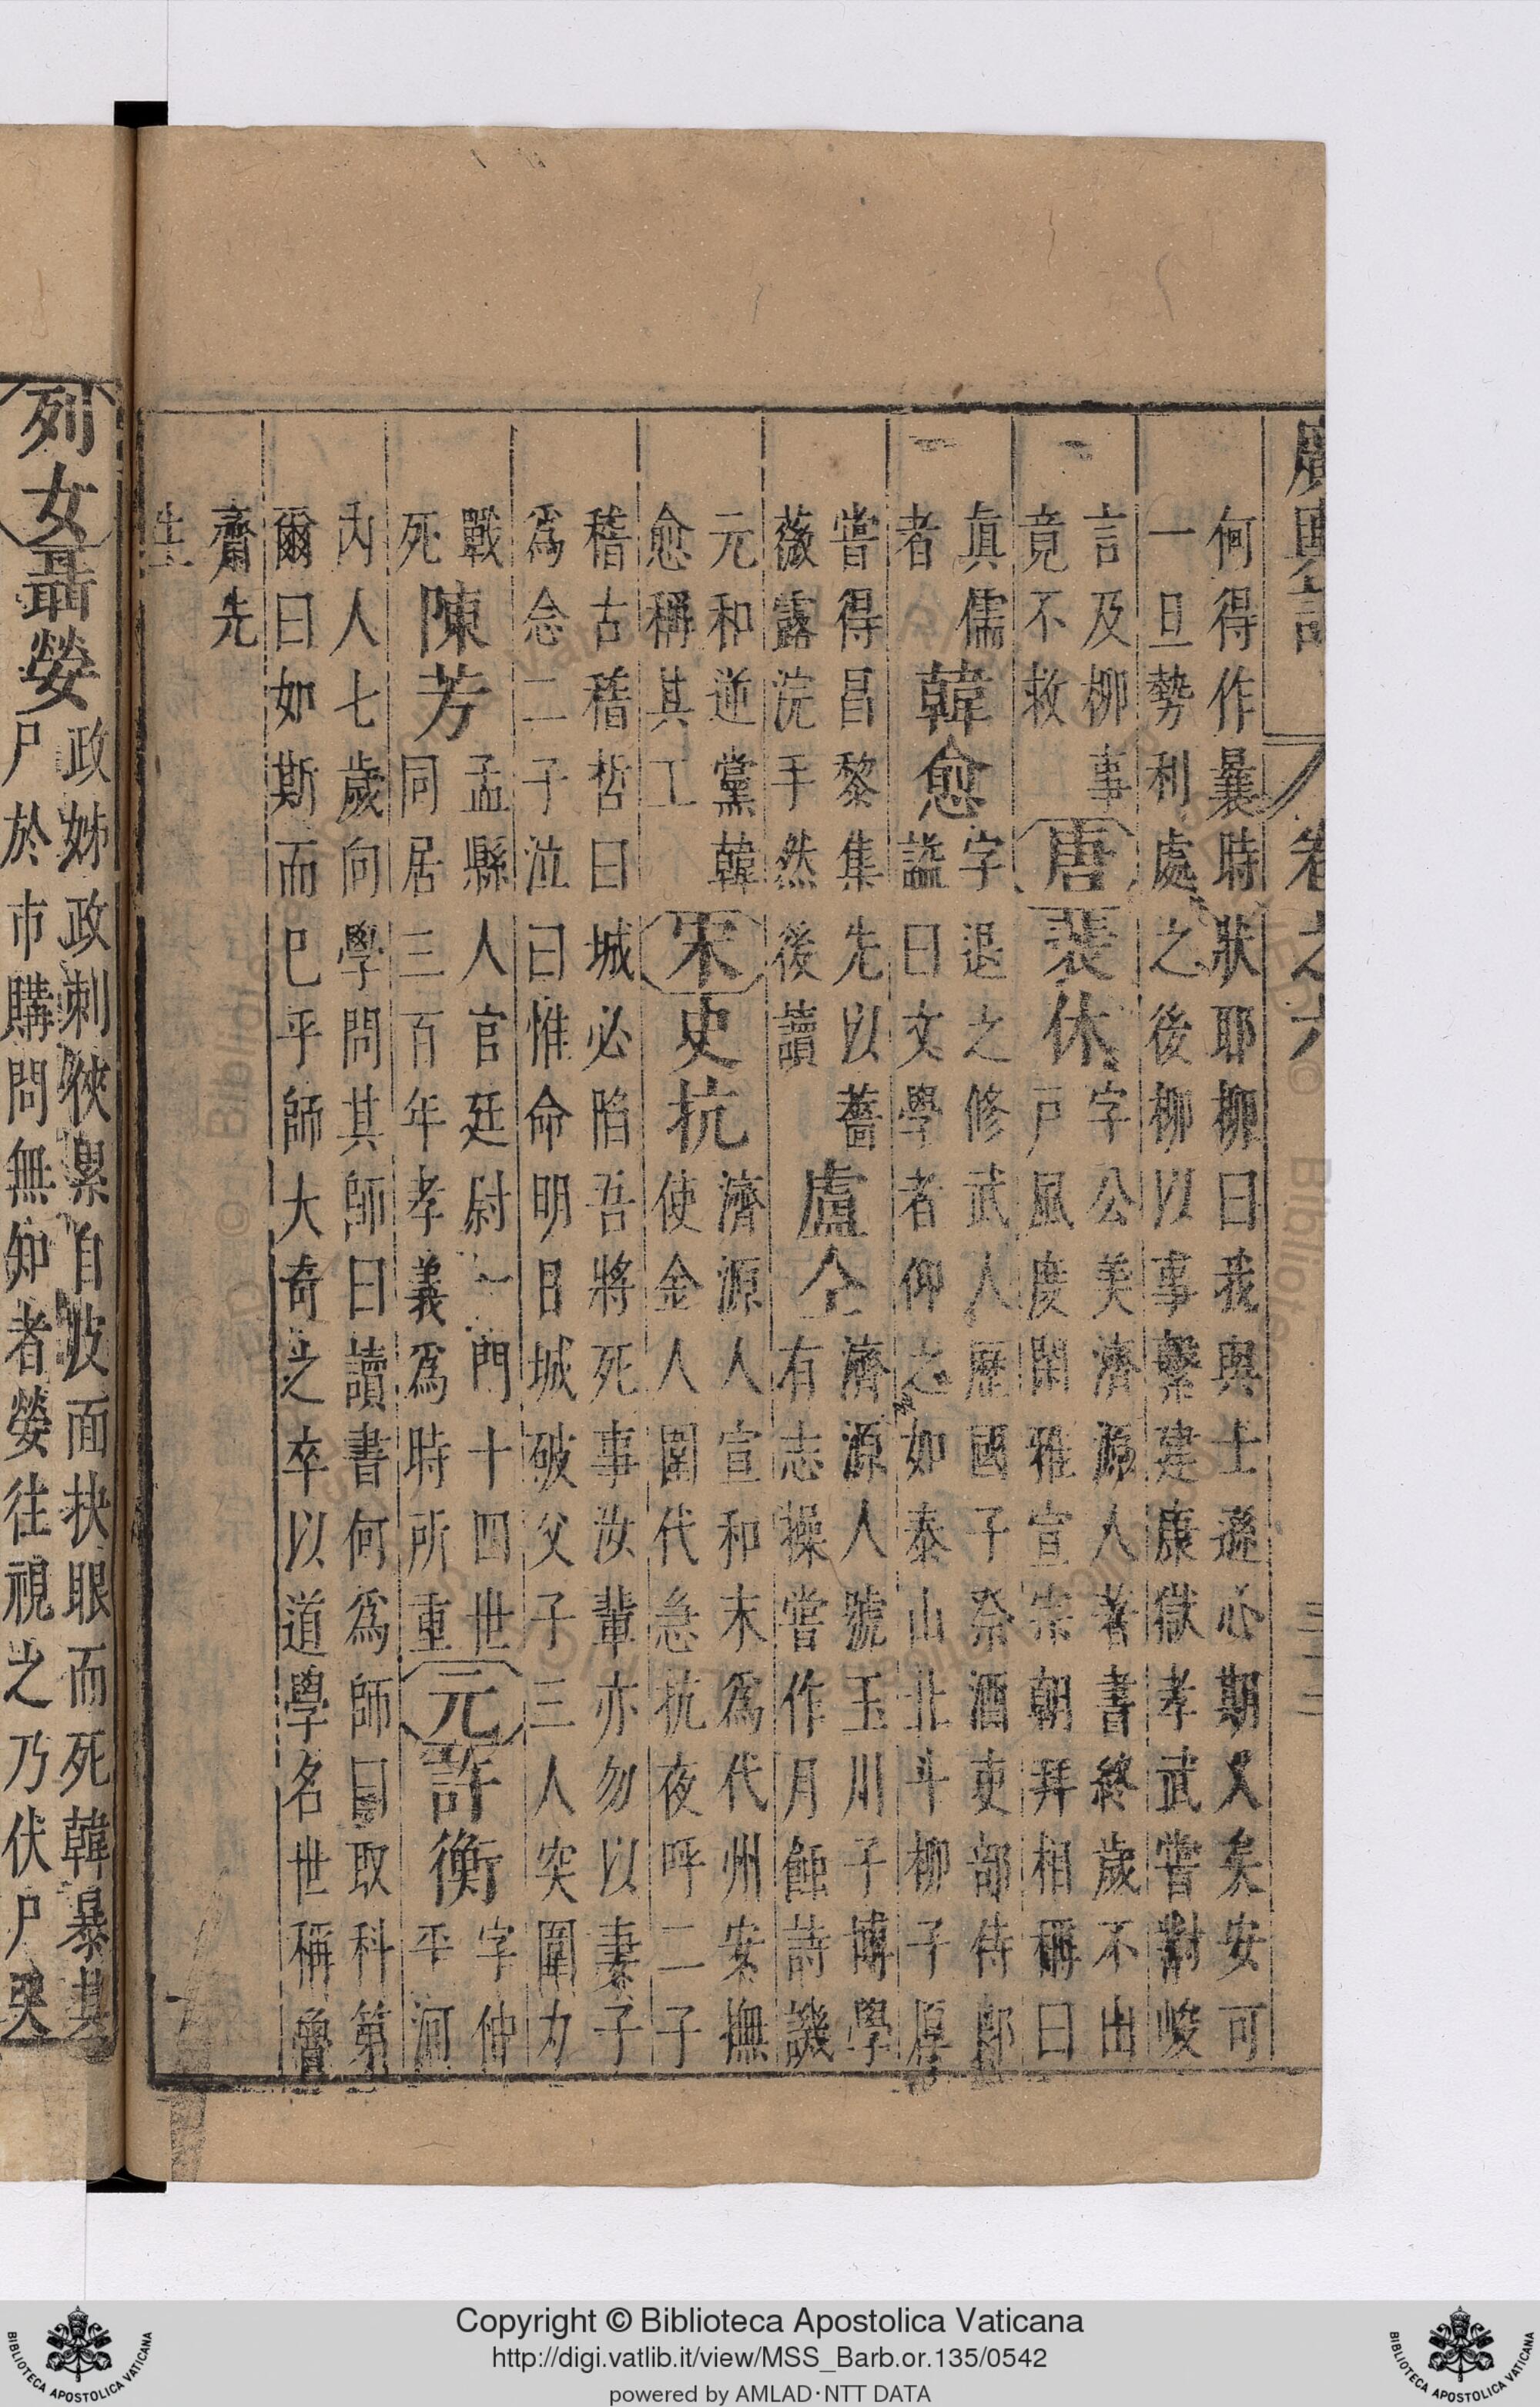 廣輿記 卷之六
何得作曩時狀耶柳曰我與士遜心期久矣安可
一旦勢利處之後柳以事繫建康獄孝武嘗對峻
言及柳事
竟不救
唐
裴休
字公美濟源人著書終歲不出
戶風度閑雅宣宗朝拜相稱曰
眞儒
者
韓愈
字退之修武人歷國子祭酒吏部侍郎
謚曰文學者仰之如泰山北斗柳子厚
嘗得昌黎集先以薔
薇露浣手然後讀
盧仝
濟源人號玉川子博學
有志操嘗作月蝕詩譏
元和逆黨韓
愈稱其工
宋
史抗
濟源人宣和末爲代州安撫
使金人圍代急抗夜呼二子
稽古稽哲曰城必陷吾將死事汝輩亦勿以妻子
爲念二子泣曰惟命明日城破父子三人突圍力
戰
死
陳芳
孟縣人官廷尉一門十四世
同居三百年孝義爲時所重
元
許衡
字仲
平河
內人七歲向學問其師曰讀書何爲師曰取科第
爾曰如斯而巳乎師大奇之卒以道學名世稱魯
齋先
生
列女
聶嫈
政姊政刺俠累自皮面抉眼而死韓暴其
尸於市購問無知者嫈往視之乃伏尸哭
Copyright © Biblioteca Apostolica Vaticana
http://digi.vatlib.it/view/MSS_Barb.or.135/0542
powered by AMLAD·NTT DATA
BIBLIOTECA APOSTOLICA VATICANA
BIBLIOTECA APOSTOLICA VATICANA